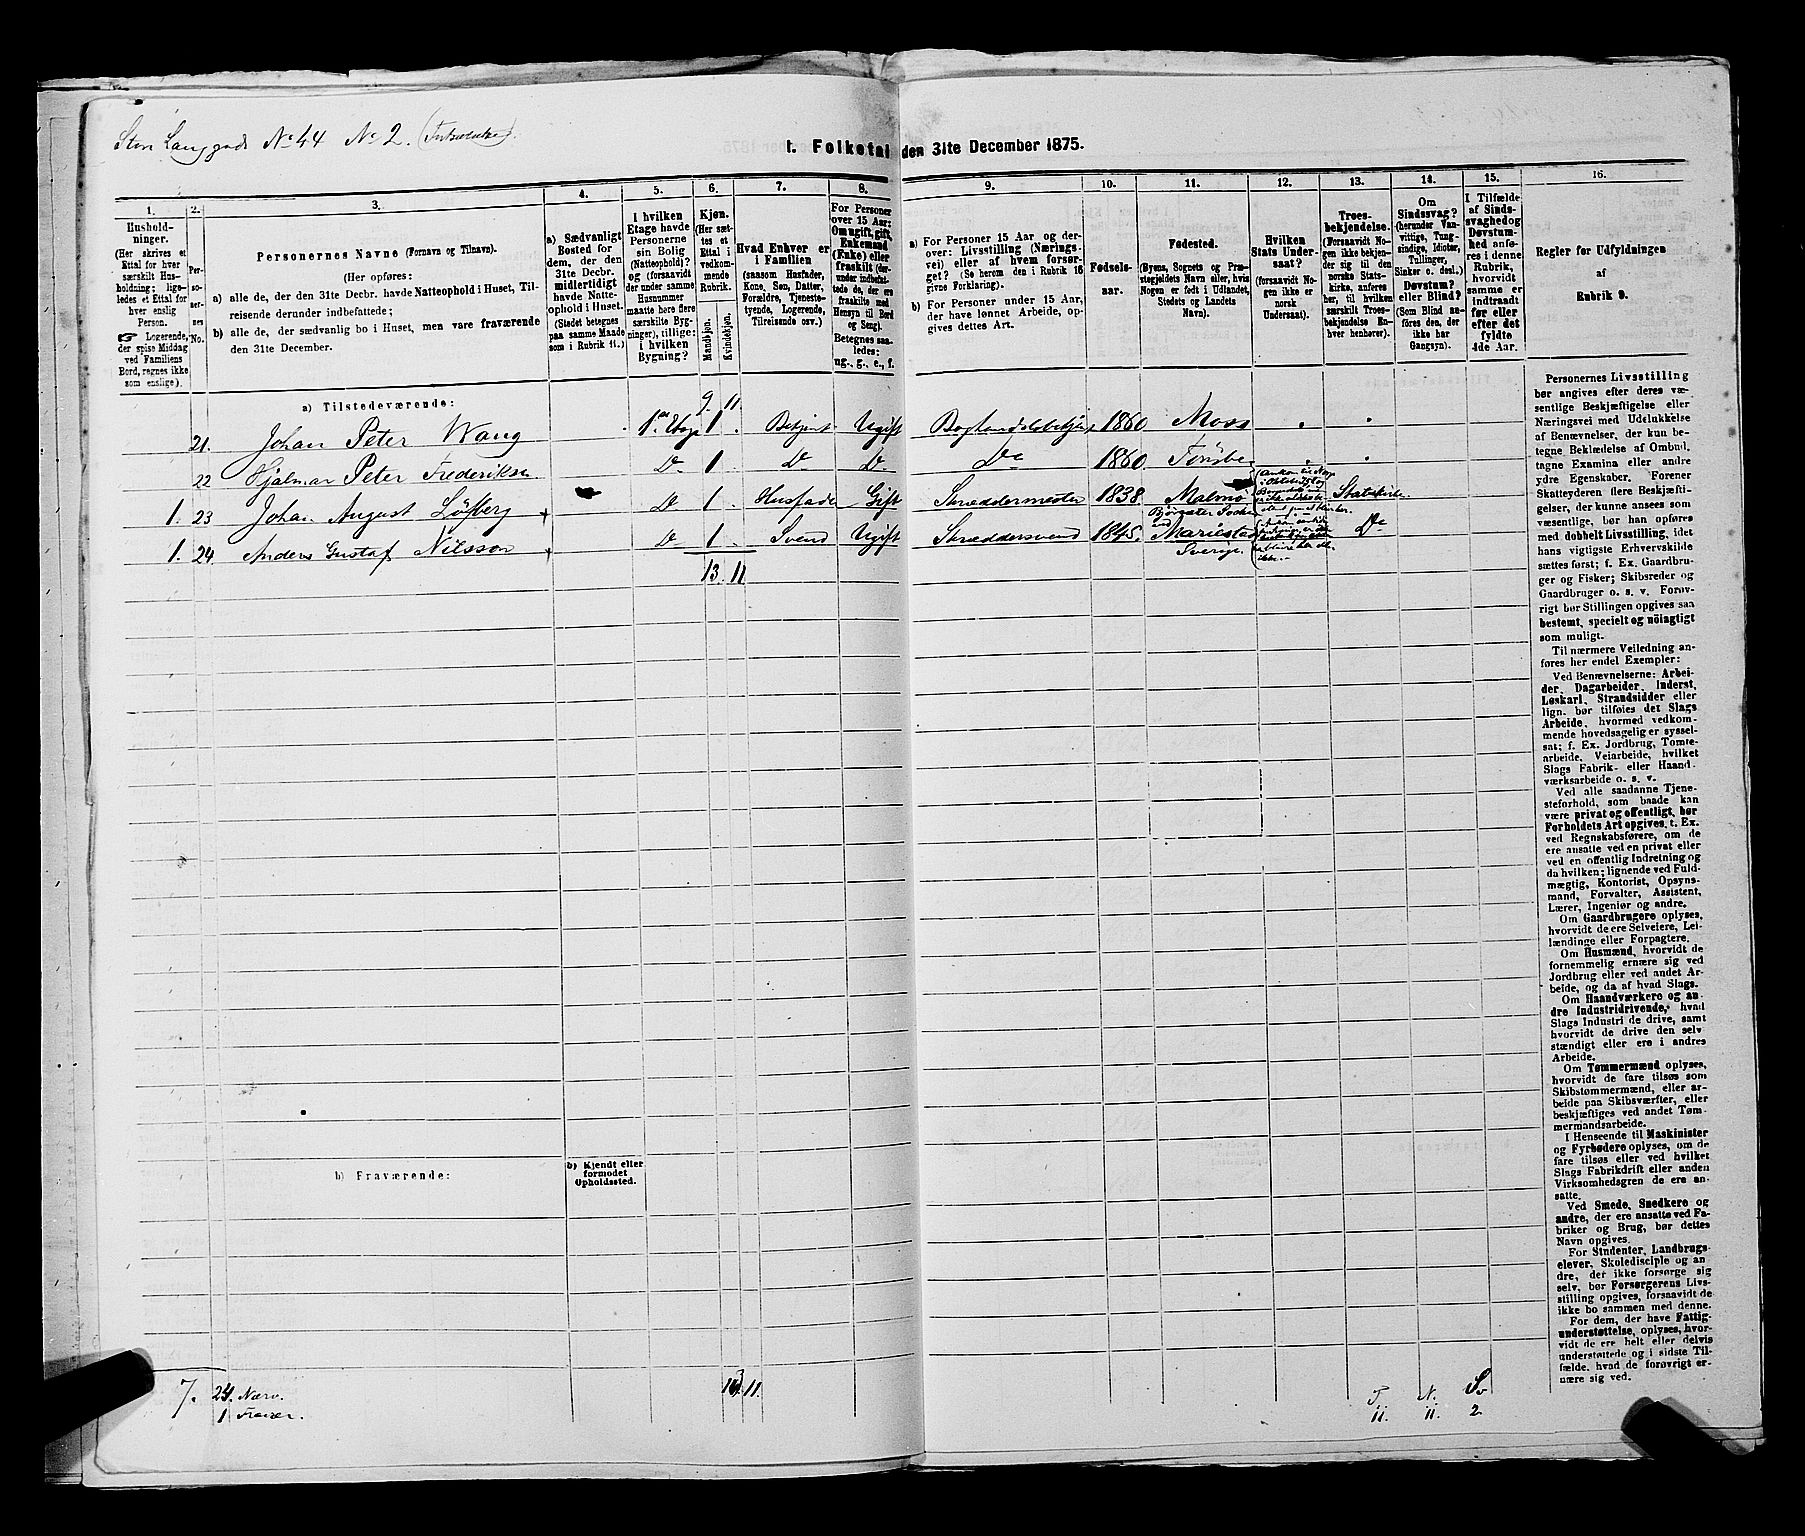 Store Langgade No 44 No 2.
I. Folketal den 31te December 1875.
1.
Hushold-
ninger.
(Her skrives et
Ettal for hver
særskilt Hus-
holdning; lige-
ledes et Ettal for
hver enslig
Person.
☞ Logerende,
der spise Middag
ved Familiens
Bord, regnes ikke
som enslige).
2.
Per-
so-
ner-
nes
No.
3.
Personernes Navne (Fornavn og Tilnavn).
(Her opføres:
a) alle de, der den 31te Decbr. havde Natteophold i Huset, Til-
reisende derunder indbefattede;
b) alle de, der sædvanlig bo i Huset, men vare fraværende
den 31te December.
4.
a) Sædvanligt
Bosted for
dem, der den
31te Decbr.
midlertidigt
havde Natte-
ophold i Huset.
(Stedet betegnes
paa samme Maade
som i Rubrik 11.)
5.
I hvilken
Etage havde
Personerne
sin Bolig
(Natteophold)?
og (forsaavidt
der under samme
Husnummer
maatte høre flere
særskilte Byg-
ninger), tillige:
i hvilken
Bygning?
6.
Kjøn.
(Her sæt-
tes et
Ettal i
vedkom-
mende
Rubrik.
Mandkjøn.
Kvindekjøn.
7.
Hvad Enhver er
i Familien
(saasom Husfader,
Kone, Søn, Datter,
Forældre, Tjeneste-
tyende, Logerende,
Tilreisende osv.)
8.
For Personer
over 15 Aar:
Om ugift, gift,
Enkemand
(Enke) eller
fraskilt (der-
under indbefat-
tede de, der ere
fraskilte med
Hensyn til Bord
og Seng).
Betegnes saa-
ledes:
ug., g., e., f.
9.
a) For Personer 15 Aar og der-
over: Livsstilling (Nærings-
vei) eller af hvem forsør-
get? (Se herom den i Rubrik 16
givne Forklaring).
b) For Personer under 15 Aar,
der have lønnet Arbeide, op-
gives dettes Art.
10.
Fødsels-
aar.
11.
Fødested.
(Byens, Sognets og Præ-
stegjeldets Navn eller, hvis
Nogen er født i Udlandet,
Stedets og Landets
Navn).
12.
Hvilken
Stats Under-
saat?
(forsaavidt No-
gen ikke er
norsk
Undersaat).
13.
Troes-
bekjendelse.
(Forsaavidt No-
gen ikke bekjen-
der sig til den
norske Stats-
kirke, anføres
her, til hvilken
særskilt Troes-
bekjendelse En-
hver henhører).
14.
Om
Sindssvag?
(herunder Van-
vittige, Tung-
sindige, Idioter,
Tullinger,
Sinker o. desl.)
Døvstum?
eller Blind?
(Som Blind an-
føres den, der
ikke har
Gangsyn).
15.
I Tilfælde
af Sinds-
svaghed og
Døvstum-
hed anfø-
res i denne
Rubrik,
hvorvidt
samme er
indtraadt
før eller
efter det
fyldte
4de Aar.
16.
Regler for Udfyldningen
af
Rubrik 9.
a) Tilstedeværende:
9. 11
21. Johan Peter Wang 1ste Etage 1 Betjent Ugift 1860 Moss
22 Hjalmar Peter Frederiksen Do 1 Do Do Do 1860
1. 23 Johan August Löfberg Do 1 Husfader Gift Skræddermester 1838. Malmö Statskirke
1. 24 Anders Gustaf Nilsson Do 1 Svend Ugift Skræddersvend 1845. Mariestad Sverige. Do
13. 11
b) Fraværende:
b) Kjendt eller
formodet
Opholdssted.
Personernes Livsstilling
bør angives efter deres væ-
sentlige Beskjæftigelse eller
Næringsvei med Udelukkelse
af Benævnelser, der kun be-
tegne Beklædelse af Ombud,
tagne Examina eller andre
ydre Egenskaber. Forener
Skatteyderen flere Beskjæfti-
gelser, der kunne ansees som
væsentlige, bør han opføres
med dobbelt Livsstilling, idet
hans vigtigste Erhvervskilde
sættes først; f. Ex. Gaardbru-
ger og Fisker; Skibsreder og
Gaardbruger o. s. v. Forøv-
rigt bør Stillingen opgives saa
bestemt, specielt og nøiagtigt
som muligt.
Til nærmere Veiledning an-
føres her endel Exempler:
Ved Benævnelserne: Arbei-
der, Dagarbeider, Inderst,
Løskarl, Strandsidder eller
lign. bør tilføies det Slags
Arbeide, hvormed vedkom-
mende hovedsagelig er syssel-
sat; f. Ex. Jordbrug, Tomte-
arbeide, Veiarbeide, hvilket
Slags Fabrik- eller Haand-
værksarbeide o. s. v.
Ved alle saadanne Tjene-
steforhold, som baade kan
være privat og offentligt, bør
Forholdets Art opgives, t. Ex.
ved Regnskabsførere, om de
ere ansatte ved en privat eller
ved en offentlig Indretning og
da hvilken; lignende ved Fuld-
mægtig, Kontorist, Opsyns-
mand, Forvalter, Assistent,
Lærer, Ingeniør og andre.
Om Gaardbrugere oplyses,
hvorvidt de ere Selveiere, Lei-
lændinge eller Forpagtere.
Om Husmænd, hvorvidt de
fornemmelig ernære sig ved
Jordbrug eller ved andet Ar-
beide, og da af hvad Slags.
Om Haandværkere og an-
dre Industridrivende, hvad
Slags Industri de drive, samt
hvorvidt de drive den selv
stændigt eller ere i andres
Arbeide.
Om Tømmermænd oplyses,
hvorvidt de fare tilsøs som
Skibstømmermænd, eller ar-
beide paa Skibsværfter, eller
beskjæftiges ved andet Tøm-
mermandsarbeide.
I Henseende til Maskinister
og Fyrbødere oplyses, om de
fare tilsøs eller ved hvilket
Slags Fabrikdrift eller anden
Virksomhedsgren de ere an-
satte.
Ved Smede, Snedkere og
andre, der ere ansatte ved Fa-
briker og Brug, bør dettes
Navn opgives.
For Studenter, Landbrugs-
elever, Skoledisciple og an
dre, der ikke forsørge sig
selv, bør Forsørgerens Livs-
stilling opgives, forsaavidt de
ikke bo sammen med denne.
For dem, der have Fattig-
understøttelse, oplyses, hvor-
vidt de ere helt eller delvis
understøttede og i sidste Til-
fælde, hvad de forøvrigt er-
nære sig ved.
7. 24. Nærv. 13 11. T N. Sv
1 Fravær. 11. 11. 2